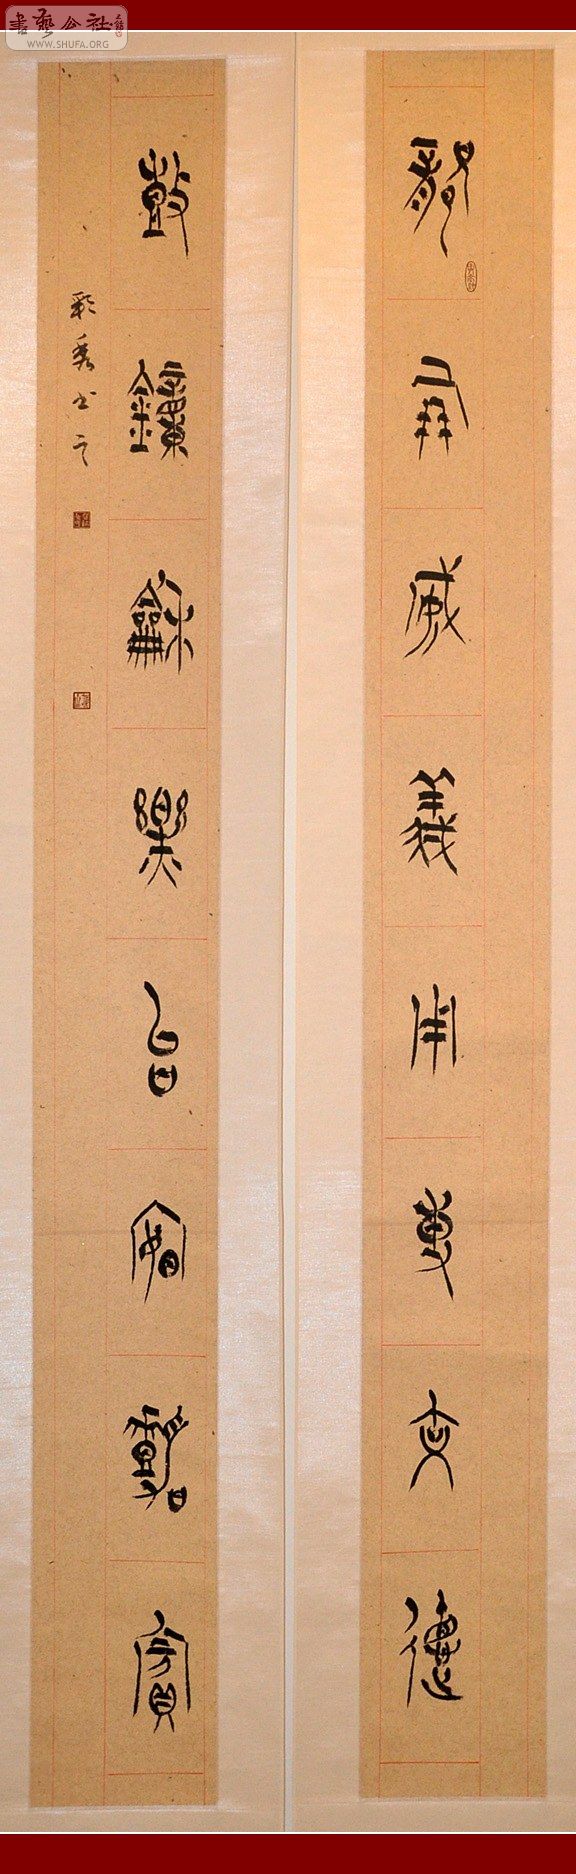 書藝公社
WWW.SHUFA.ORG
爯威義用惠文德
鼓鐘龢樂台宴嘉賓
彩秀书之